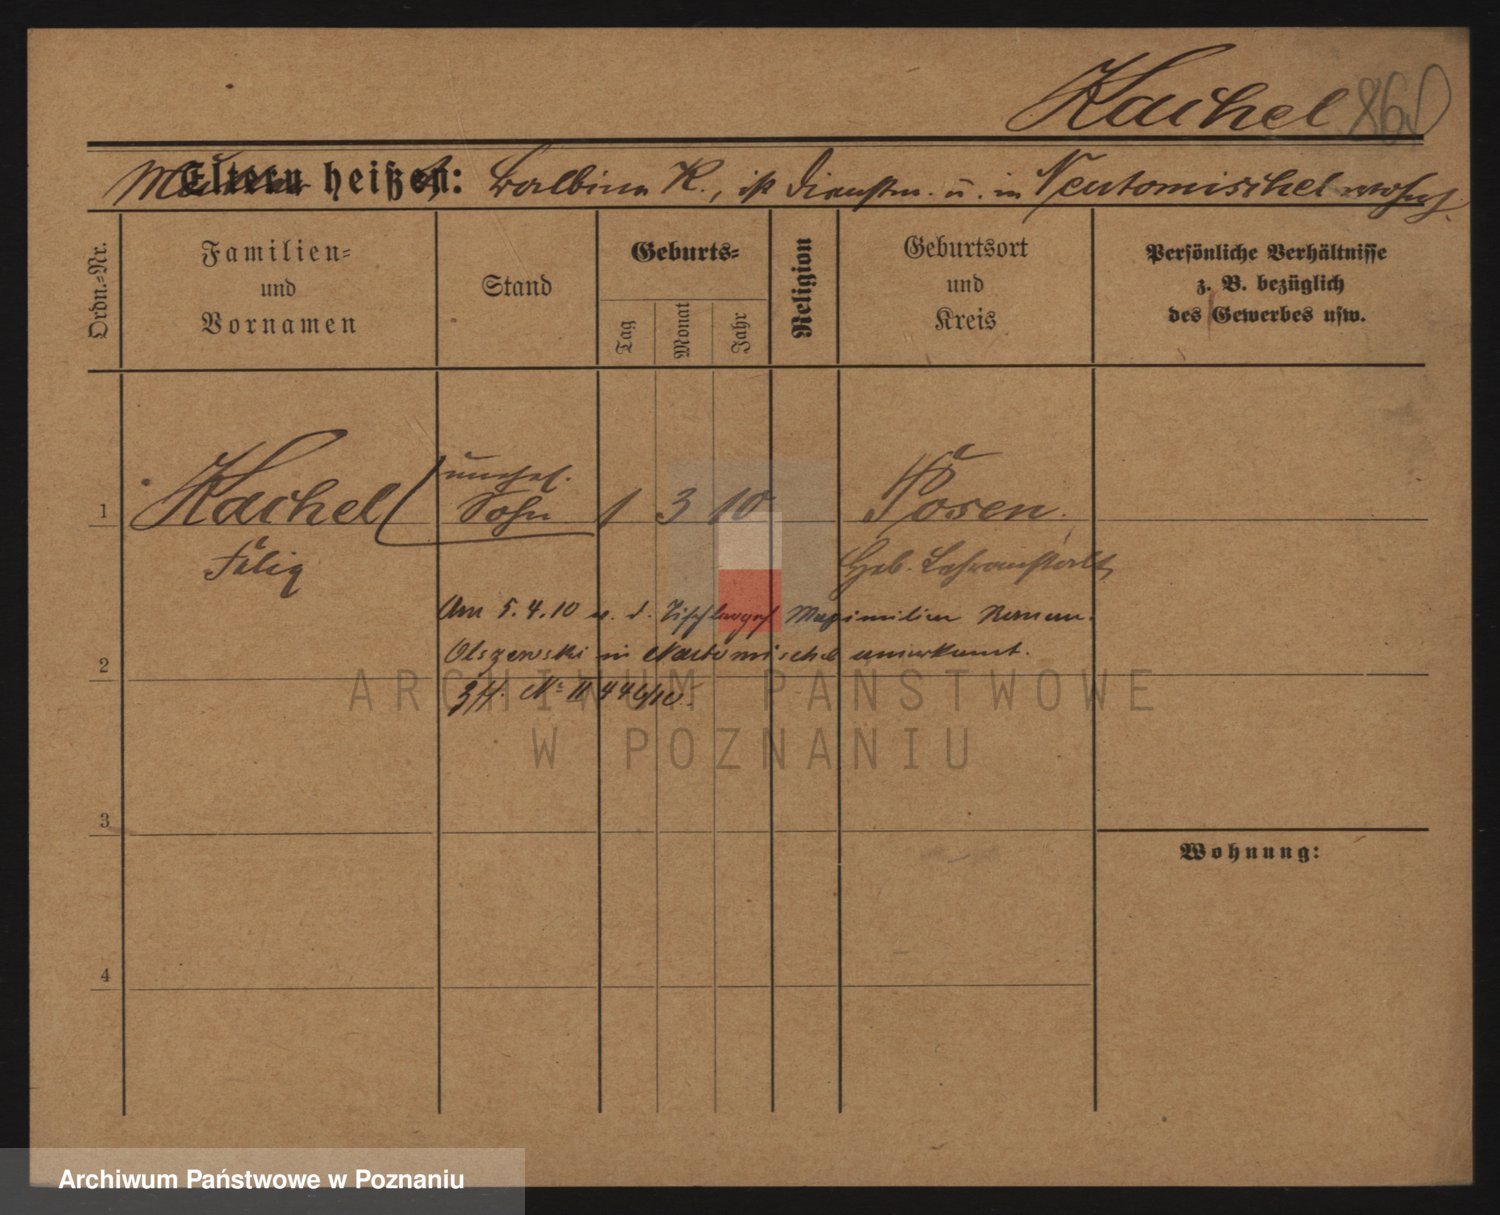 Kachel 860
Mutter
Eltern heißen: Balbina K., ist Dienstm. u. in Neutomischel wohnh.
Ordn.-Nr.
Familien-
und
Vornamen
Stand
Geburts-
Tag
Monat
Jahr
Religion
Geburtsort
und
Kreis
Persönliche Verhältnisse
z. B. bezüglich
des Gewerbes usw.
unehel.
1 Kachel Sohn 1 3 10 Posen
Felix Heb. Lehranstalt
Am 5.4.10 v. d. Tischlerges. Maximilian Roman
Olszewski in Neutomischel anerkannt.
2
Nr. II 446/10.
ARCHIWUM PAŃSTWOWE
W POZNANIU
3
Wohnung:
4
Archiwum Państwowe w Poznaniu